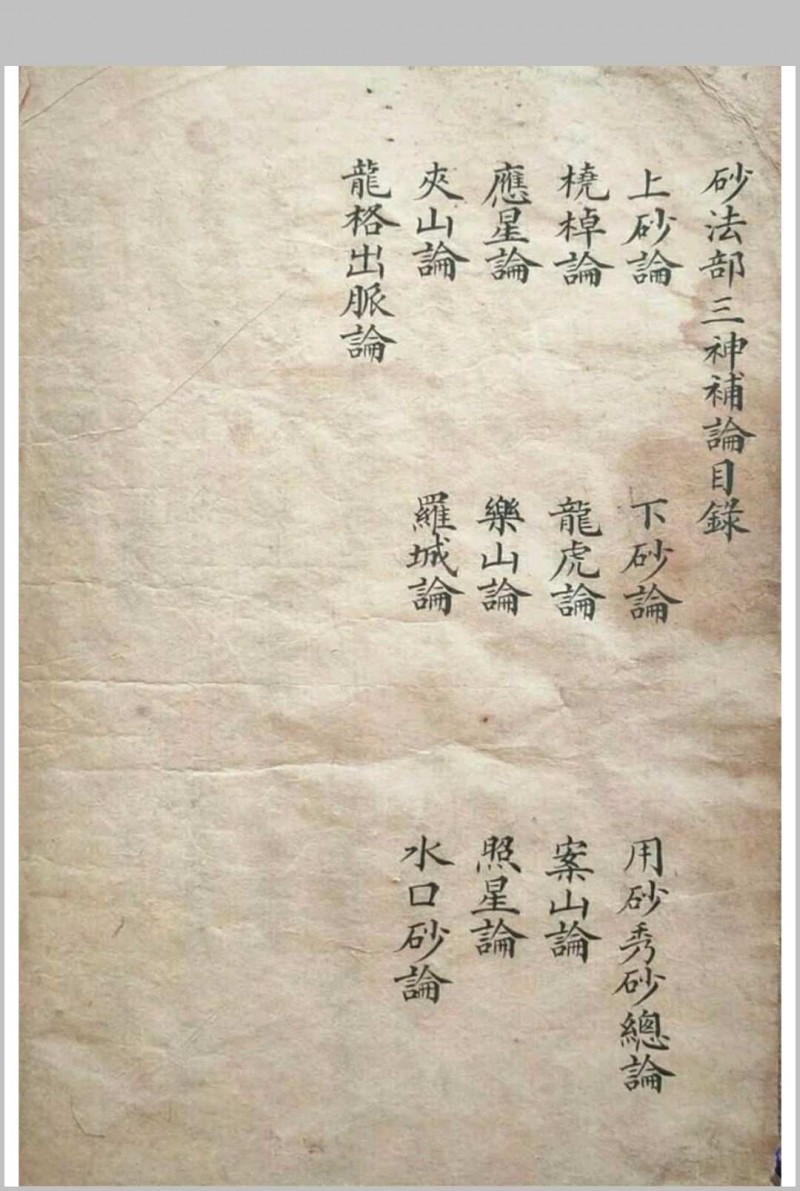 砂法部三神補論目錄
上砂論 下砂論 用砂秀砂總論
橈棹論 龍虎論 案山論
應星論 樂山論 照星論
夾山論 羅城論 水口砂論
龍格出脈論